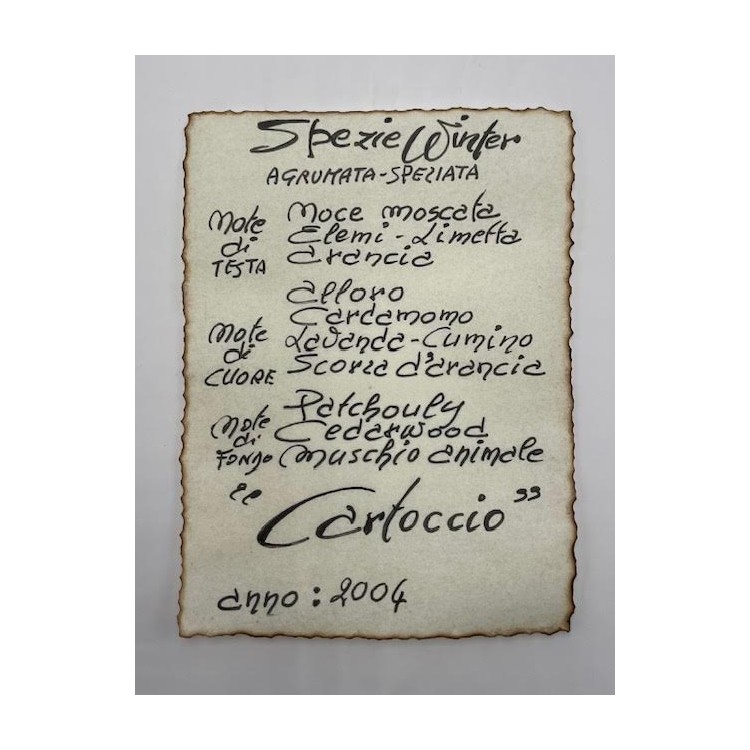 Spezie Winter
AGRUMATA-SPEZIATA
Note di TESTA
Noce moscata
Elemi-Limetta
Arancia
Note di CUORE
Alloro
Cardamomo
Lavanda-Cumino
Scorza d'arancia
Note di FONDO
Patchouly
Cedarwood
Muschio animale
"Cartoccio"
anno: 2004